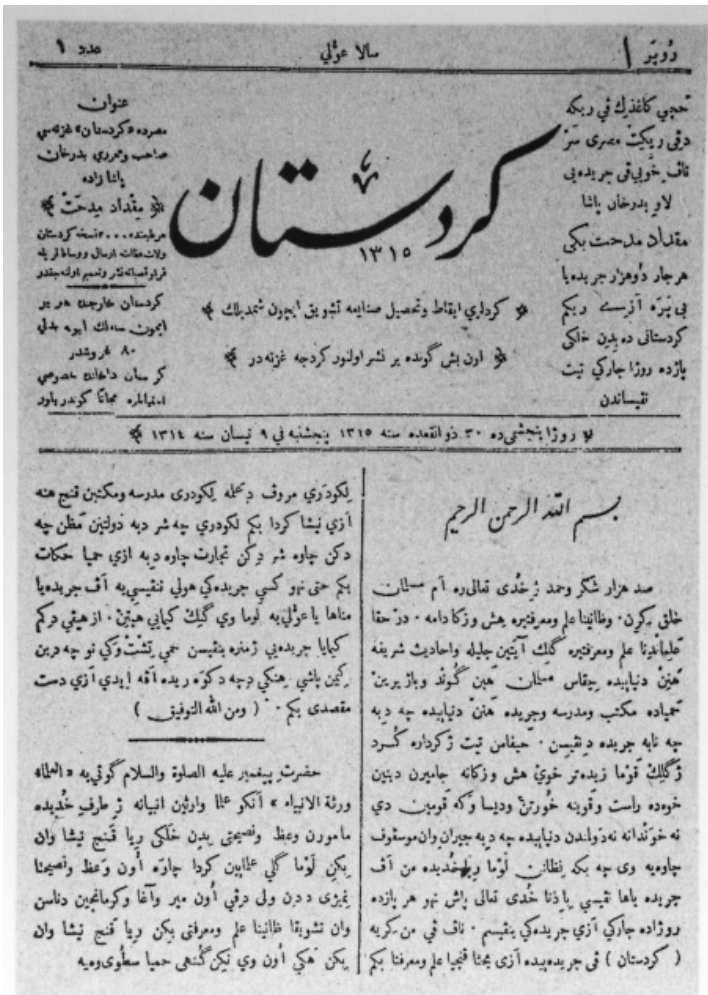 رُوپَر ١
سالا عوّلي
عدد ١
حچي كاغذيك في ريكه
درڤي ريكت مصري سرَ
ناڤ خويي ڤي جريده يي
لاو بدرخان پاشا
مقداد مدحت بكي
هر جار دُو هزار جريده يا
بي پَره آزى ريكم
كردستانى ده بدين خلكى
پازده روژا جاركي تيت
نڤيساندن
كردستان
١٣١٥
كردلري ايقاظ وتحصيل صنايعه تشويق ايچون شمديلك
اون بش گونده بر نشر اولنور كردجه غزته در
عنوان
مصرده «كردستان» غزته سي
صاحب ومحرري بدرخان
پاشا زاده
مقداد مدحت
هر طبعنده ٢٠٠٠ نسخه كردستان
كردستان خارجنده هر ير
ايچون سنه لك ابونه بدلي
٨٠ غروشدر
كردستان داخلنده خصوصي
استيانلره مجانا كوندريلور
روژا پنجشي ده ٣٠ ذوالقعده سنه ١٣١٥ پنجشنبه في ٩ نيسان سنه ١٣١٤
بسم الله الرحمن الرحيم
صد هزار شكر وحمد ژ خُدى تعالى ره آم مسلمان
خلق كرن . وظانينا علم ومعرفتيره هش وزكا دامه . در حقا
علماندنا علم ومعرفتيره گلك آيتين جليله واحاديث شريفه
هَنِن دنيابيده چقاس مسلمان هَين گوند وباژيرين
حميا ده مكتب ومدرسه وجريده هَنن دنيابيده چه دبه
چه نابه جريده دنڤيسن . حيفا من تيت ژ كردا ره كُرد
ژ گلك قوما زيده تر خوي هش وزكانه جاميرن دينين
خوده راست وقوينه خُورتن وديسا وكه قومين دي
نه خوندانه نه دولندن دنيابيده چه دبه جيران وان موسقوف
چاوه يه وى چه بكه نظانن لوما ريا خُديده من آڤ
جريده ياها نڤيسي ياذنا خُدى تعالى پاش نهو هر پازده
روژا ده جاركي آزي جريده كي بنڤيسم . ناڤ ڤي من كريه
( كردستان ) ڤى جريده بيده آزى بحثا قنجيا علم ومعرفتا بكم
لكودري مروڤ دچمله لكودرى مدرسه ومكتبن قنج هنه
آزي نيشا كردا بكم لكودري چه شر دبه دولتين مظن چه
دكن چاوه شر دكن تجارت چاوه دبه ازي حميا حكات
بكم حتى نهو كسي جريده كي هولي ننڤيسي يه آڤ جريده يا
مناها يا عوّلي يه لوما وي گلك كيمايي هبتن . از هيڤي دركم
كيمايا جريده يي ژمنره بنڤيسن حمي تشت وكي نو چه دبن
كيمن پاشي هنكي دچه دكوه ريده آڤه ايدي آزي دست
مقصدى بكم . ( ومن الله التوفيق )
حضرت پيغمبر عليه الصلوة والسلام گوتي يه « العلماء
ورثة الانبياء » آنكو علما وارثين انبيانه ژ طرف خُديده
مامورن وعظ ونصيحتى بدن خلكى ريا قَنج نيشا وان
بكن لَوما گلي علمايين كردا چاوه أون وَعظ ونصيحتا
نميژى ددن ولى درڤي أون مير وآغا وكرمانجين دناسن
وان تشويقا ظانينا علم ومعرفتى بكن ريا قنج نيشا وان
بكن هَكي أون وي نكن گُنهى حميا ستوى وه يه